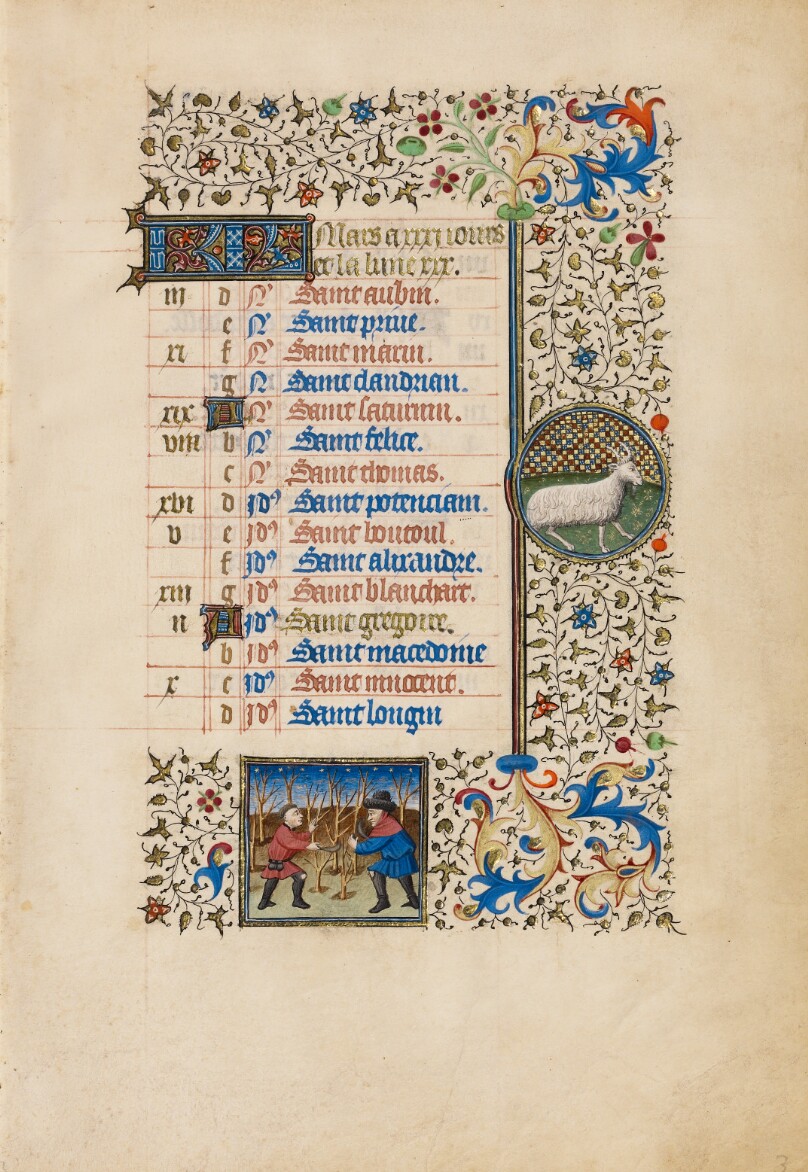 KL Mars a xxxi iours
et la lune xxx.
iii d N Saint aubin.
e N Saint priue.
xi f N Saint marin.
g N Saint dandrian.
xix A N Saint saturnin.
viii b N Saint felice.
c N Saint thomas.
xvi d id9 Saint potenciam.
v e id9 Saint boutoul.
f id9 Saint alixandre.
xiii g id9 Saint blanchart.
ii A id9 Saint gregoire.
b id9 Saint macedonie
x c id9 Saint innocent.
d id9 Saint longin
3